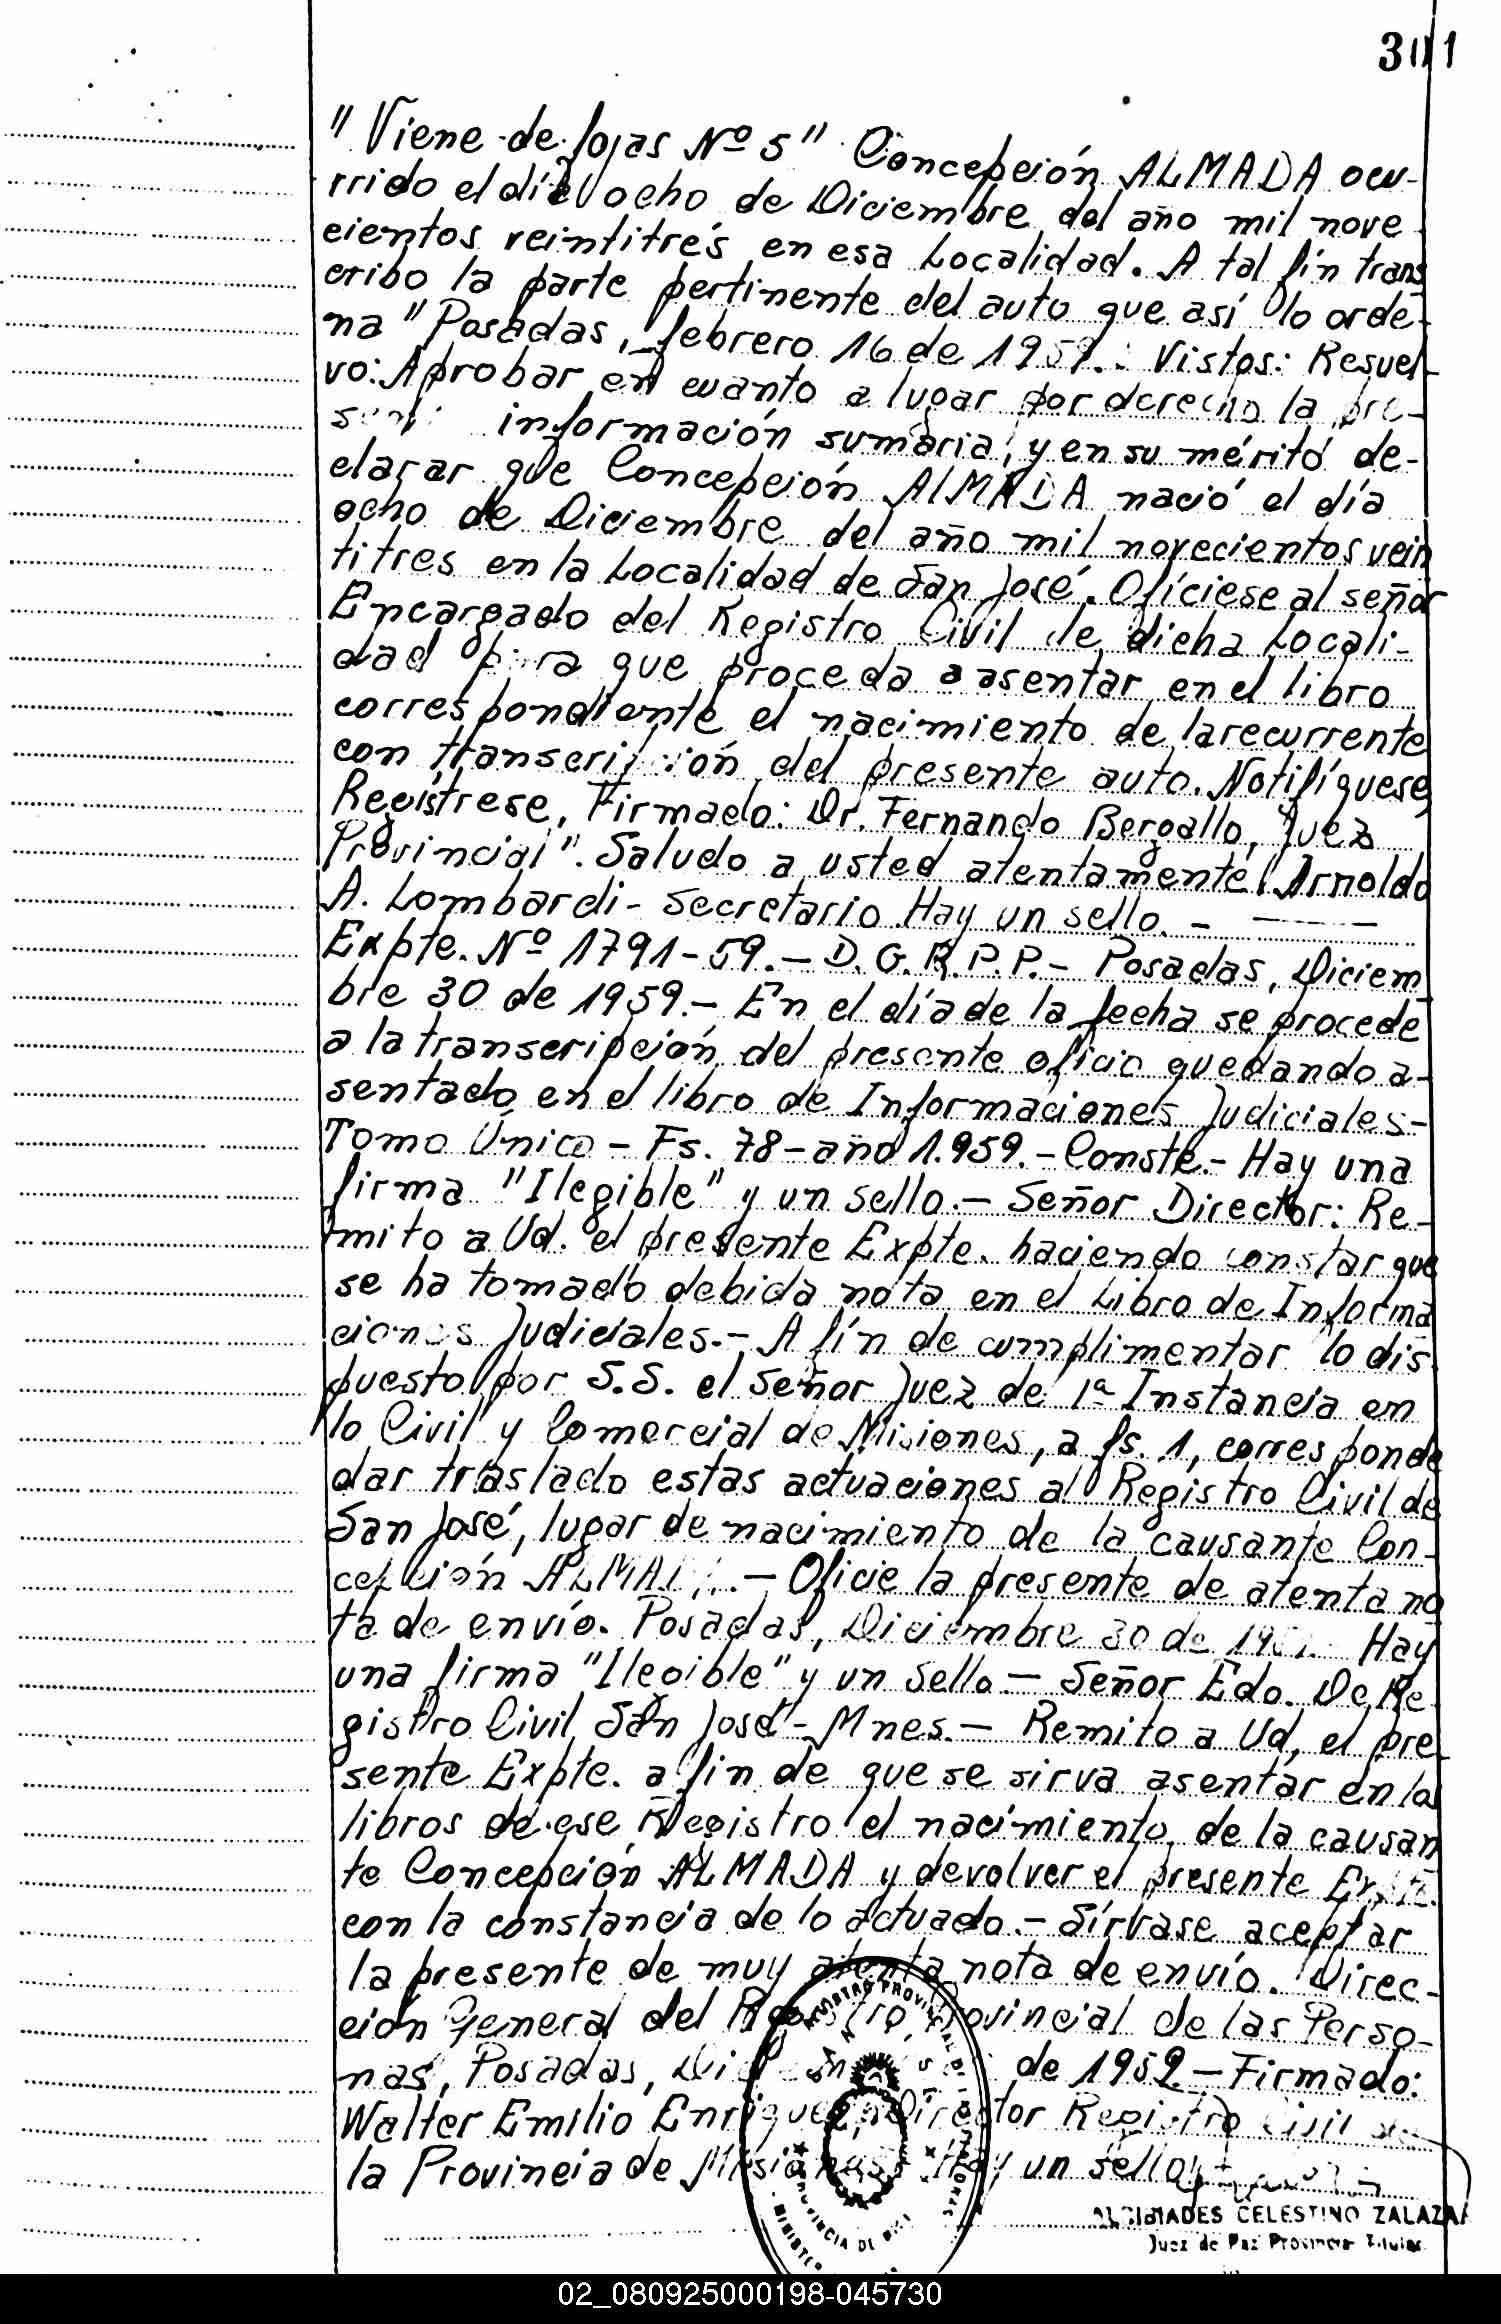 "Viene de fojas Nº 5" Concepción ALMADA ocu-
rrido el día ocho de Diciembre del año mil nove
cientos veintitrés en esa Localidad. A tal fin trans
cribo la parte pertinente del auto que así lo orde-
na "Posadas, febrero 16 de 1959.: Vistos: Resuel-
vo: Aprobar en cuanto a lugar por derecho la pre-
información sumaria, y en su mérito de-
clarar que Concepción ALMADA nació el día
ocho de Diciembre del año mil novecientos vein
titres en la Localidad de San José. Ofíciese al señor
Encargado del Registro Civil de dicha Locali-
dad para que proceda a asentar en el libro
correspondiente el nacimiento de la recurrente
con transcripción del presente auto. Notifíquese
Regístrese, Firmado: Dr. Fernando Bergallo, Juez
Provincial". Saludo a usted atentamente. Arnoldo
A. Lombardi - Secretario. Hay un sello. -
Expte. Nº 1791-59.- D.G.R.P.P.- Posadas, Diciem
bre 30 de 1959.- En el día de la fecha se procede
a la transcripción del presente oficio quedando a-
sentado en el libro de Informaciones Judiciales-
Tomo Único - Fs. 78 - año 1.959.- Conste.- Hay una
firma "Ilegible" y un sello.- Señor Director: Re-
mito a Ud. el presente Expte. haciendo constar que
se ha tomado debida nota en el Libro de Informa
ciones Judiciales.- A fín de cumplimentar lo dis-
puesto por S.S. el señor Juez de 1ª Instancia en
lo Civil y Comercial de Misiones, a fs. 1, corresponde
dar traslado estas actuaciones al Registro Civil de
San José, lugar de nacimiento de la causante Con-
cepción ALMADA.- Oficie la presente de atenta no
ta de envío. Posadas, Diciembre 30 de Hay
una firma "Ilegible" y un sello - Señor Edo. De Re
gistro Civil San José - Mnes.- Remito a Ud, el pre-
sente Expte. a fin de que se sirva asentar en los
libros de ese Registro el nacimiento de la causan
te Concepción ALMADA y devolver el presente Expte.
con la constancia de lo actuado.- Sírvase aceptar
la presente de muy atenta nota de envío. Direc-
ción General del Registro Provincial de las Perso-
nas, Posadas, de 1959.- Firmado:
Walter Emilio Enriquez, Director Registro Civil de
la Provincia de Misiones. Hay un sello.
ALCIBIADES CELESTINO ZALAZAR
Juez de Paz Provincial Titular
02_080925000198-045730